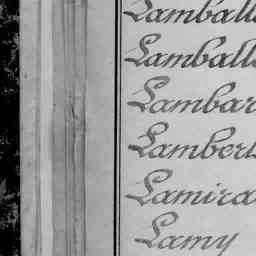 Lamball
Lamball
Lambar
Lambert
Lamira
Lamy